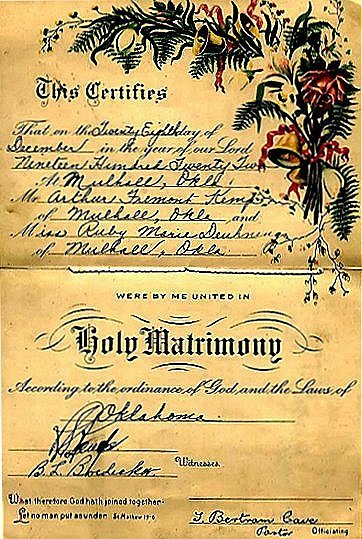 This Certifies
That on the Twenty Eighth day of
December in the year of our Lord
Nineteen Hundred Twenty
At Mulhall, Okla
Mr. Arthur Fremont
of Mulhall, Okla and
Miss Ruby Marie
of Mulhall, Okla
WERE BY ME UNITED IN
Holy Matrimony
According to the ordinance of God, and the Laws, of
Oklahoma
B. L.
Witnesses
What therefore God hath joined together-
Let no man put asunder. St. Mathew 19-6
T. Bertram Cave
Pastor Officiating